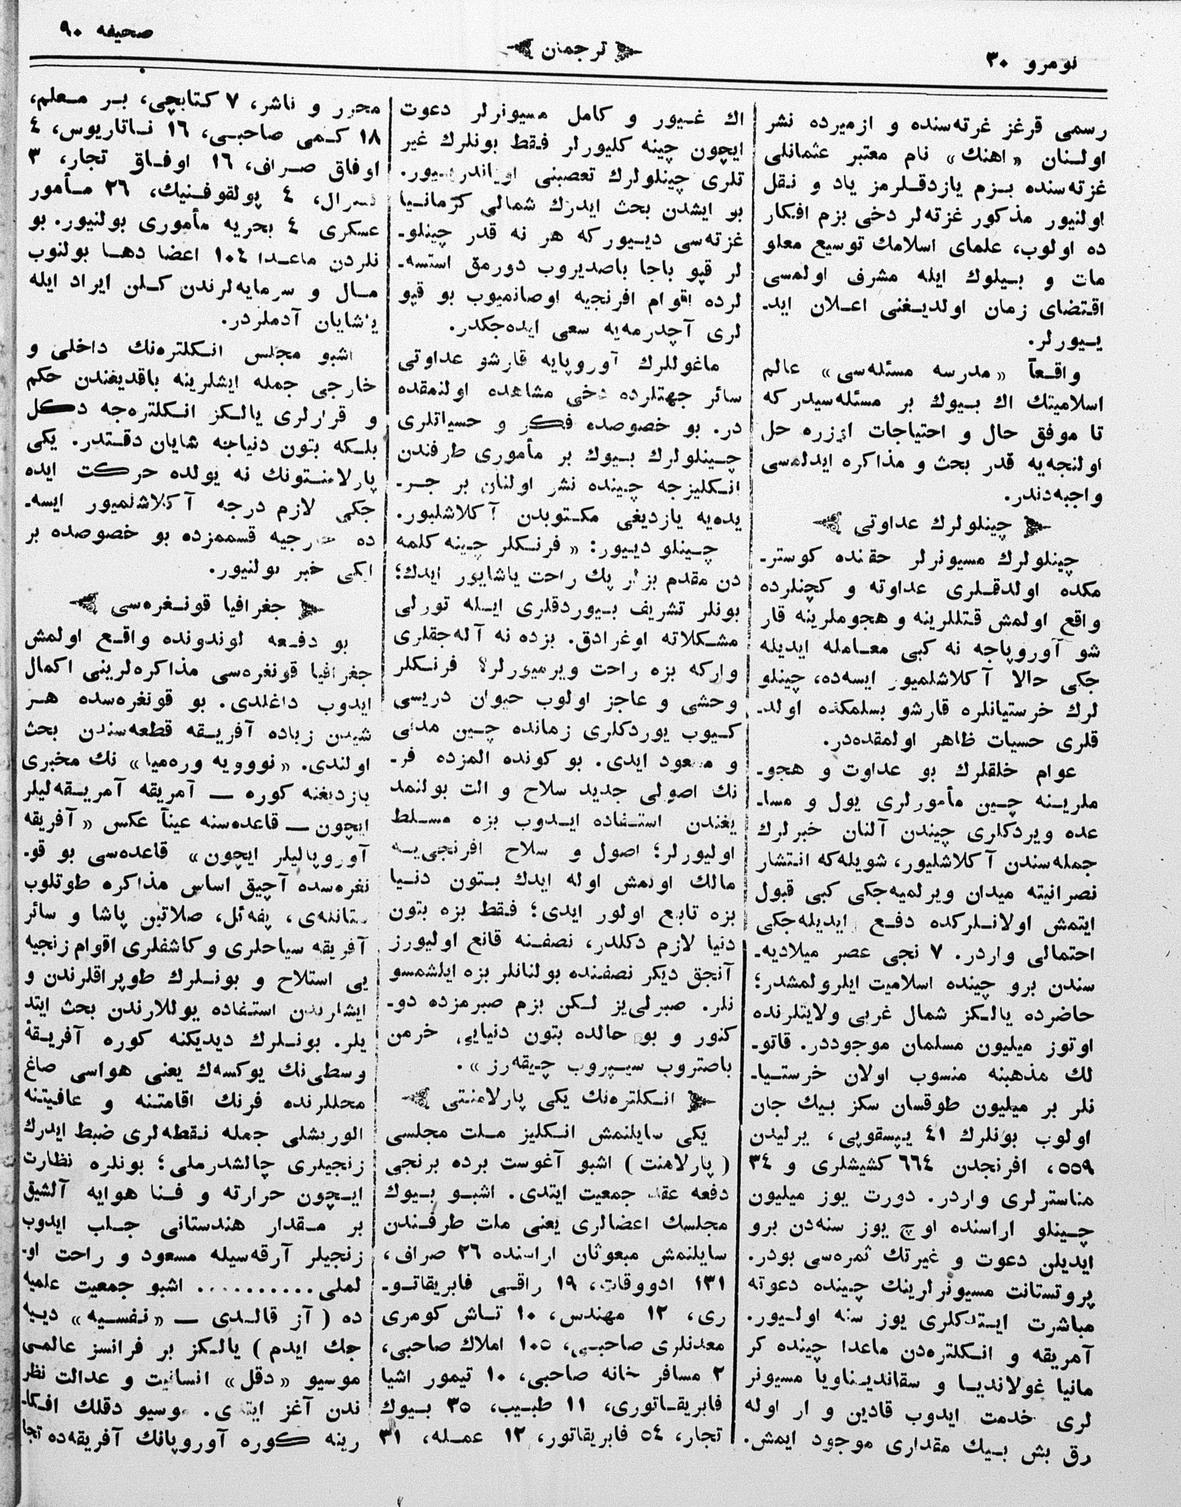 نومرو ۳۰
ترجمان
صحیفه ۹۰
رسمی قرغز غزته‌سنده و ازمیرده نشر
اولنان «اهنك» نام معتبر عثمانلی
غزته‌سنده بزم یازدقلرمز یاد و نقل
اولنیور مذکور غزته‌لر دخی بزم افکار
ده اولوب، علمای اسلامك توسیع معلو
مات و بیلوك ایله مشرف اولمسی
اقتضای زمان اولدیغنی اعلان اید۔
ییورلر.
واقعاً «مدرسه مسئله‌سی» عالم
اسلامیتك اك بیوك بر مسئله سیدر که
تا موفق حال و احتیاجات اوزره حل
اولنجه‌یه قدر بحث و مذاکره ایدلمسی
واجبه‌دندر.
چینلولرك عداوتی
چینلولرك مسیونرلر حقنده کوستر۔
مکده اولدقلری عداوته و کچنلرده
واقع اولمش قتللرینه و هجوملرینه قار
شو آوروپاجه نه کبی معامله ایدیله
جکی حالا آکلاشلمیور ایسه‌ده، چینلو
لرك خرستیانلره قارشو بسلمکده اولد۔
قلری حسیات ظاهر اولمقده‌در.
عوام خلقلرك بو عداوت و هجو۔
ملرینه چین مأمورلری یول و مسا۔
عده ویردکلری چیندن آلنان خبرلرك
جمله‌سندن آکلاشلیور، شویله‌که انتشار
نصرانیته میدان ویرلمیه‌جکی کبی قبول
ایتمش اولانلرکده دفع ایدیله‌جکی
احتمالی واردر. ۷ نجی عصر میلادیه۔
سندن برو چینده اسلامیت ایلرولمشدر؛
حاضرده یالکز شمال غربی ولایتلرنده
اوتوز میلیون مسلمان موجوددر. قاتو۔
لك مذهبنه منسوب اولان خرستیا۔
نلر بر میلیون طوقسان سکز بیك جان
اولوب بونلرك ٤۱ یپسقوپی، یرلیدن
۵۵۹، افرنجدن ٦٦٤ کشیشلری و ۳٤
مناسترلری واردر. دورت یوز میلیون
چینلو اراسنده اوچ یوز سنه‌دن برو
ایدیلن دعوت و غیرتك ثمره‌سی بودر.
پروتستانت مسیونرلرینك چینده دعوته
مباشرت ایتدکلری یوز سنه اولیور.
آمریقه و انکلتره‌دن ماعدا چینده کر
مانیا غولاندیا و سقاندیناویا مسیونر
لری خدمت ایدوب قادین و ار اوله
رق بش بیك مقداری موجود ایمش.
اك غیور و کامل مسیونرلر دعوت
ایچون چینه کلیورلر فقط بونلرك غیر
تلری چینلولرك تعصبنی اویاندریور.
بو ایشدن بحث ایدرك شمالی کرمانیا
غزته‌سی دییورکه هر نه قدر چینلو۔
لر قپو باجا باصدیروب دورمق استسه۔
لرده اقوام افرنجیه اوصانمیوب بو قپو
لری آچدرمه‌یه سعی ایده‌جکدر.
ماغوللرك آوروپایه قارشو عداوتی
سائر جهتلرده دخی مشاهده اولنمقده
در. بو خصوصده فکر و حسیاتلری
چینلولرك بیوك بر مأموری طرفندن
انکلیزجه چینده نشر اولنان بر جر۔
یده‌یه یازدیغی مکتوبدن آکلاشلیور.
چینلو دییور: «فرنکلر چینه کلمه
دن مقدم بزلر پك راحت یاشایور ایدك؛
بونلر تشریف بیوردقلری ایله تورلی
مشکلاته اوغرادق. بزده نه آله‌جقلری
وارکه بزه راحت ویرمیورلر؟ فرنکلر
وحشی و عاجز اولوب حیوان دریسی
کیوب یوردکلری زمانده چین مدنی
و مسعود ایدی. بو کونده المزده فر۔
نك اصولی جدید سلاح و الت بولنمد
یغندن استفاده ایدوب بزه مسلط
اولیورلر؛ اصول و سلاح افرنجی‌یه
مالك اولمش اوله ایدك بتون دنیا
بزه تابع اولور ایدی؛ فقط بزه بتون
دنیا لازم دکلدر، نصفنه قانع اولیورز
آنجق دیکر نصفنده بولنانلر بزه ایلشمسو
نلر. صبرلی‌یز لکن بزم صبرمزده دو۔
کنور و بو حالده بتون دنیایی خرمن
باصتروب سیپروب چیقه‌رز».
انکلتره‌نك یکی پارلامنتی
یکی سایلنمش انکلیز ملت مجلسی
(پارلامنت) اشبو آغوست برده برنجی
دفعه عقد جمعیت ایتدی. اشبو بیوك
مجلسك اعضالری یعنی ملت طرفندن
سایلنمش مبعوثان اراسنده ۲٦ صراف،
۱۳۱ ادووقات، ۱۹ راقی فابریقاتو۔
ری، ۱۲ مهندس، ۱۰ تاش کومری
معدنلری صاحبی، ۱۰۵ املاك صاحبی،
۲ مسافر خانه صاحبی، ۱۰ تیمور اشیا
فابریقاتوری، ۱۱ طبیب، ۳۵ بیوك
تجار، ۵٤ فابریقاتور، ۱۲ عمله، ۳۱
محرر و ناشر، ۷ کتابچی، بر معلم،
۱۸ کمی صاحبی، ۱٦ ناتاریوس، ٤
اوفاق صراف، ۱٦ اوفاق تجار، ۳
٤ پولقوفنیك، ۲٦ مأمور
عسکری ٤ بحریه مأموری بولنیور. بو
نلردن ماعدا ۱۰٤ اعضا دها بولنوب
مال و سرمایه‌لرندن کلن ایراد ایله
یاشایان آدملردر.
اشبو مجلس انکلتره‌نك داخلی و
خارجی جمله ایشلرینه باقدیغندن حکم
و قرارلری یالکز انکلتره‌جه دکل
بلکه بتون دنیاجه شایان دقتدر. یکی
پارلامنتونك نه یولده حرکت ایده
جکی لازم درجه آکلاشلمیور ایسه۔
ده خارجیه قسممزده بو خصوصده بر
ایکی خبر بولنیور.
جغرافیا قونغره‌سی
بو دفعه لوندونده واقع اولمش
جغرافیا قونغره‌سی مذاکره‌لرینی اکمال
ایدوب داغلدی. بو قونغره‌سده هر
شیدن زیاده آفریقه قطعه‌سندن بحث
اولندی. «نوویه وره‌میا» نك مخبری
یازدیغنه کوره — آمریقه آمریقه‌لیلر
ایچون — قاعده‌سنه عیناً عکس «آفریقه
آوروپالیلر ایچون» قاعده‌سی بو قو۔
نغره‌سده آچیق اساس مذاکره طوتلوب
ستانله‌ی، پفه‌ئل، صلاتین پاشا و سائر
آفریقه سیاحلری و کاشفلری اقوام زنجیه
یی استلاح و بونلرك طوپراقلرندن و
ایشلرندن استفاده یوللارندن بحث ایتد
یلر. بونلرك دیدیکنه کوره آفریقۀ
وسطی‌نك یوکسه‌ك یعنی هواسی صاغ
محللرنده فرنك اقامتنه و عافیتنه
الوریشلی جمله نقطه‌لری ضبط ایدرك
زنجیلری چالشدرملی؛ بونلره نظارت
ایچون حرارته و فنا هوایه آلشیق
بر مقدار هندستانی جلب ایدوب
زنجیلر آرقه‌سیله مسعود و راحت او۔
لملی.......... اشبو جمعیت علمیه
ده (آز قالدی — «نفسیه» دییه
جك ایدم) یالکز بر فرانسز عالمی
موسیو «دقل» انسانیت و عدالت نظر
ندن آغز ایتدی. موسیو دقلك افکا۔
رینه کوره آوروپانك آفریقه‌ده تجا